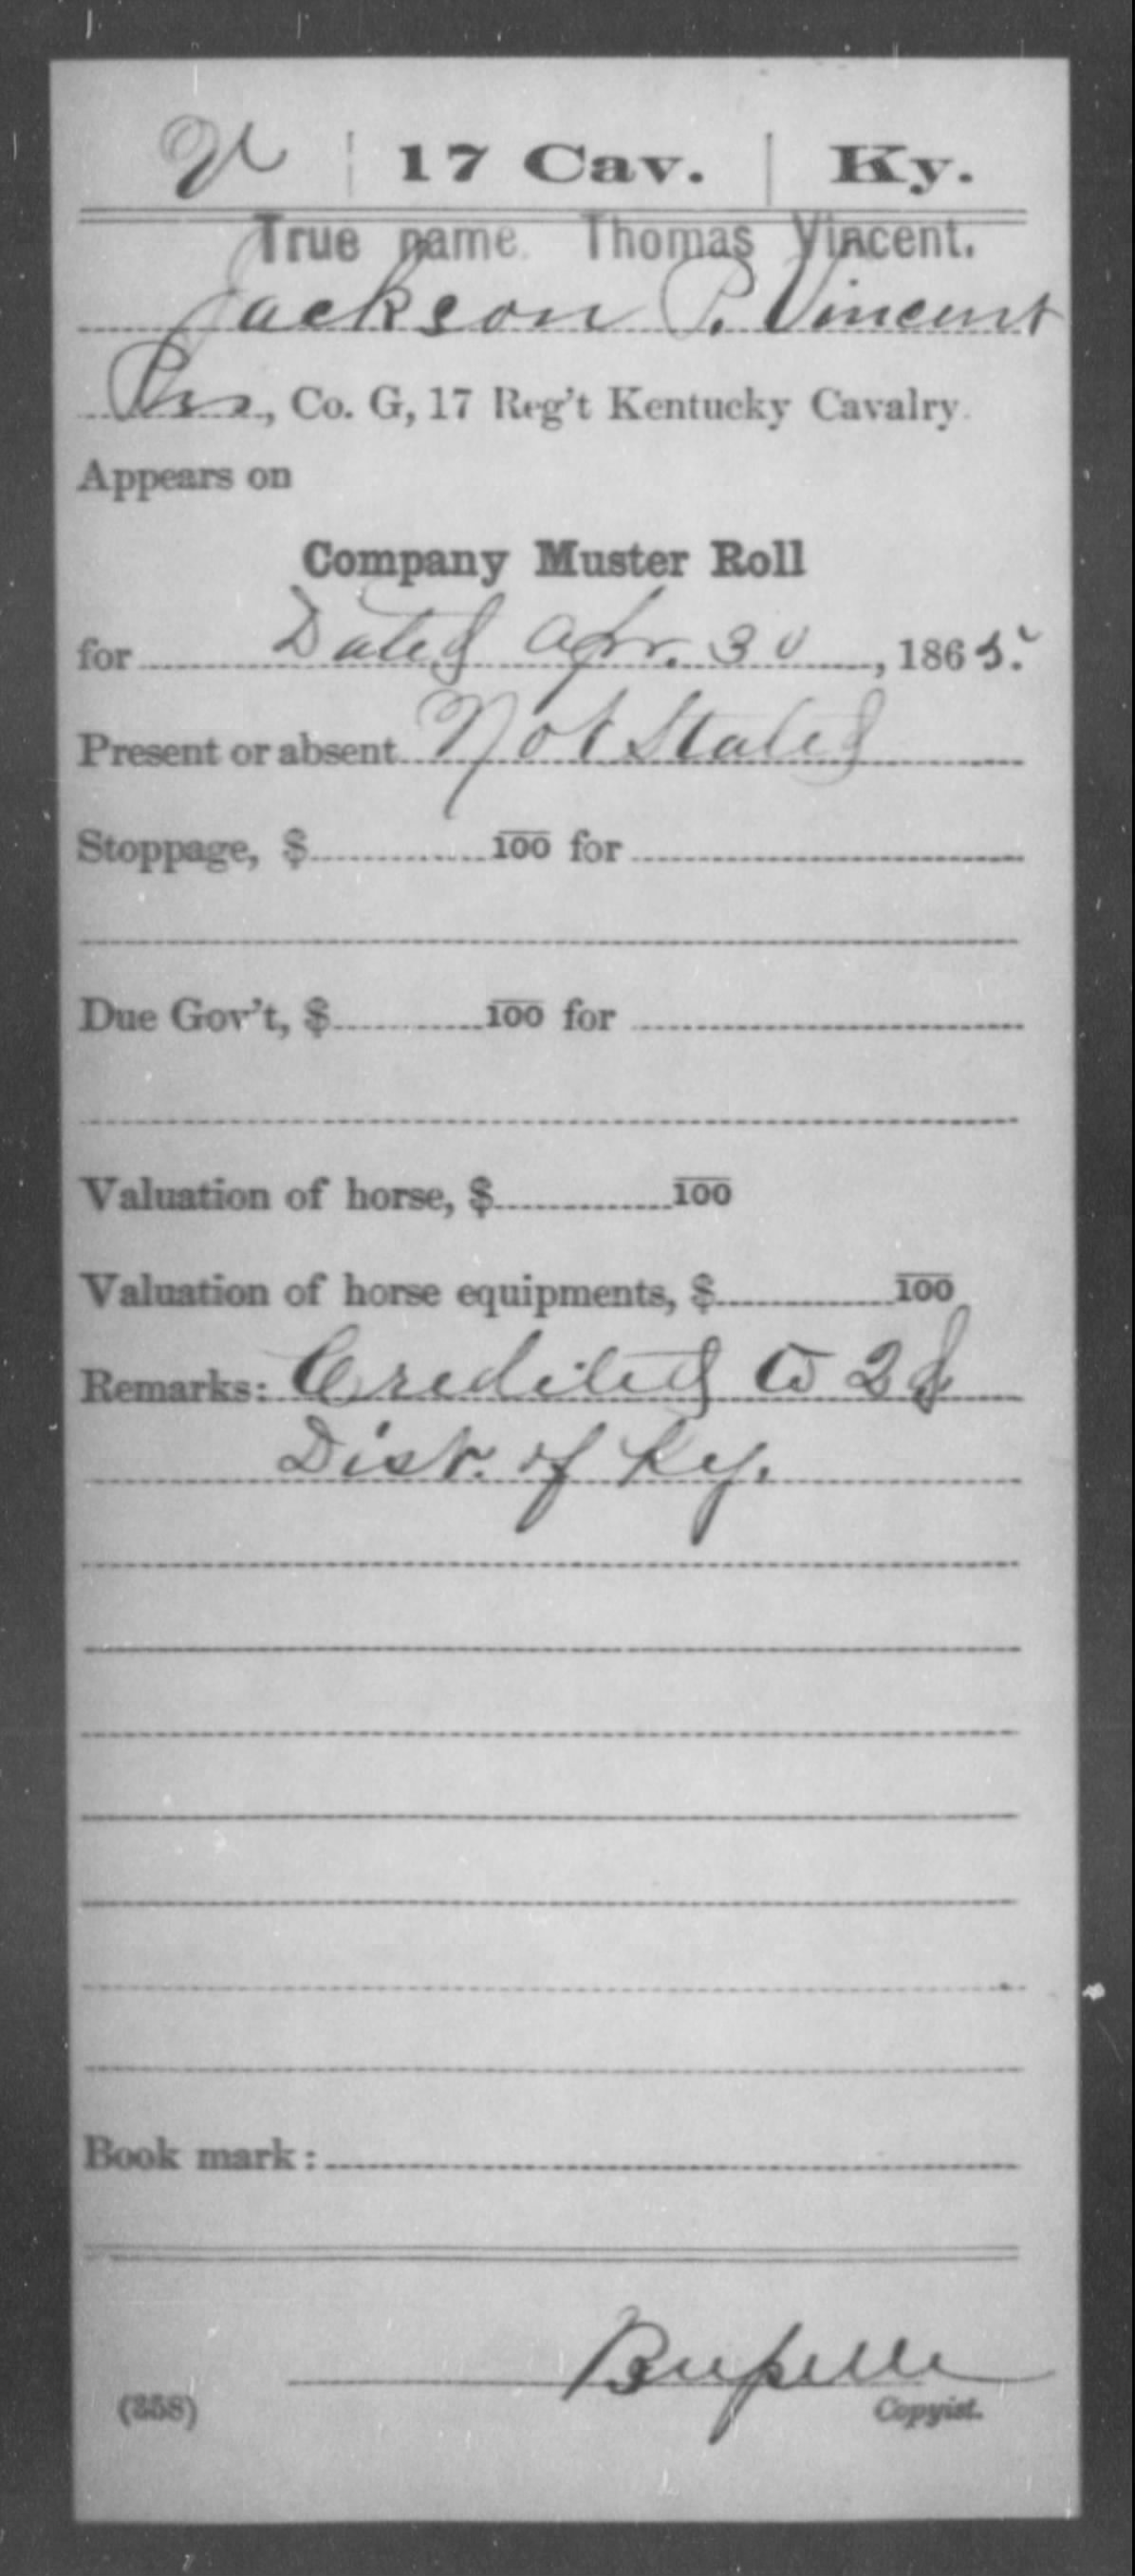 V | 17 Cav. | Ky.
True name Thomas Vincent.
Jackson P. Vincent
Pvt, Co. G, 17 Reg't Kentucky Cavalry.
Appears on
Company Muster Roll
for Dated Apr. 30, 1865.
Present or absent Not Stated
Stoppage, $ 100 for
Due Gov't, $ 100 for
Valuation of horse, $ 100
Valuation of horse equipments, $ 100
Remarks: Credited to 2d
Dist. of Ky.
Book mark:
(358)
Copyist.